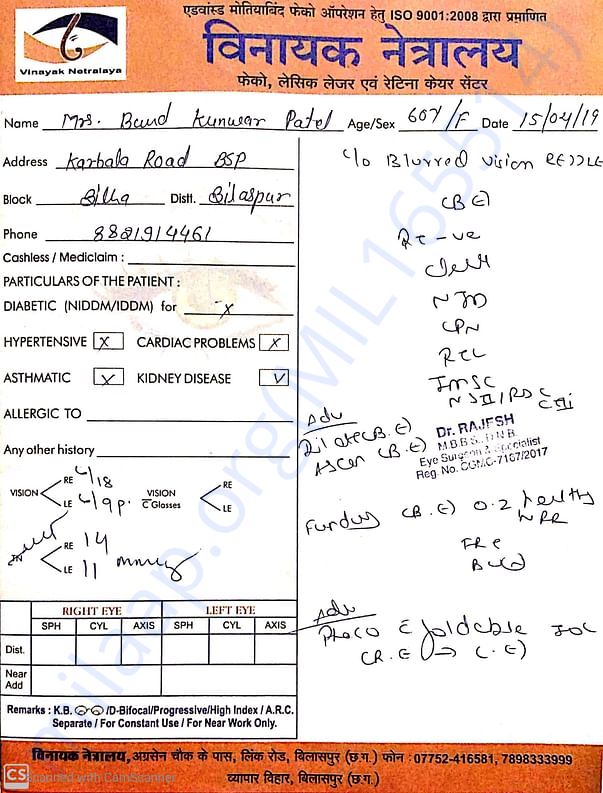 एडवांस्ड मोतियाबिंद फेको ऑपरेशन हेतु ISO 9001:2008 द्वारा प्रमाणित
विनायक नेत्रालय
फेको, लेसिक लेजर एवं रेटिना केयर सेंटर
Vinayak Netralaya
Name Mrs. Baud Kunwar Patel Age/Sex 60Y/F Date 15/04/19
Address Karbala Road BSP
Block Bilha Distt. Bilaspur
Phone 8821914461
Cashless / Mediclaim :
PARTICULARS OF THE PATIENT :
DIABETIC (NIDDM/IDDM) for x
HYPERTENSIVE x CARDIAC PROBLEMS x
ASTHMATIC x KIDNEY DISEASE
ALLERGIC TO
Any other history
VISION RE 6/18
LE 6/9p.
VISION C Glasses RE
LE
RE 14
LE 11
RIGHT EYE LEFT EYE
SPH CYL AXIS SPH CYL AXIS
Dist.
Near Add
Remarks : K.B. /D-Bifocal/Progressive/High Index / A.R.C.
Separate / For Constant Use / For Near Work Only.
c/o Blurred vision RE>>LE
(BE)
IMSC
Adv
Dilate (B.E)
Ascan (B.E)
Dr. RAJESH
M.B.B.S., D.N.B.
Eye Surgeon & Specialist
Reg. No. CGMC-7167/2017
Fundus (B.E) 0.2 healthy
Adv
Phaco c foldable IOL
(R.E → L.E)
milaap.org(MIL165514)
विनायक नेत्रालय, अग्रसेन चौक के पास, लिंक रोड, बिलासपुर (छ.ग.) फोन : 07752-416581, 7898333999
व्यापार विहार, बिलासपुर (छ.ग.)
CS Scanned with CamScanner